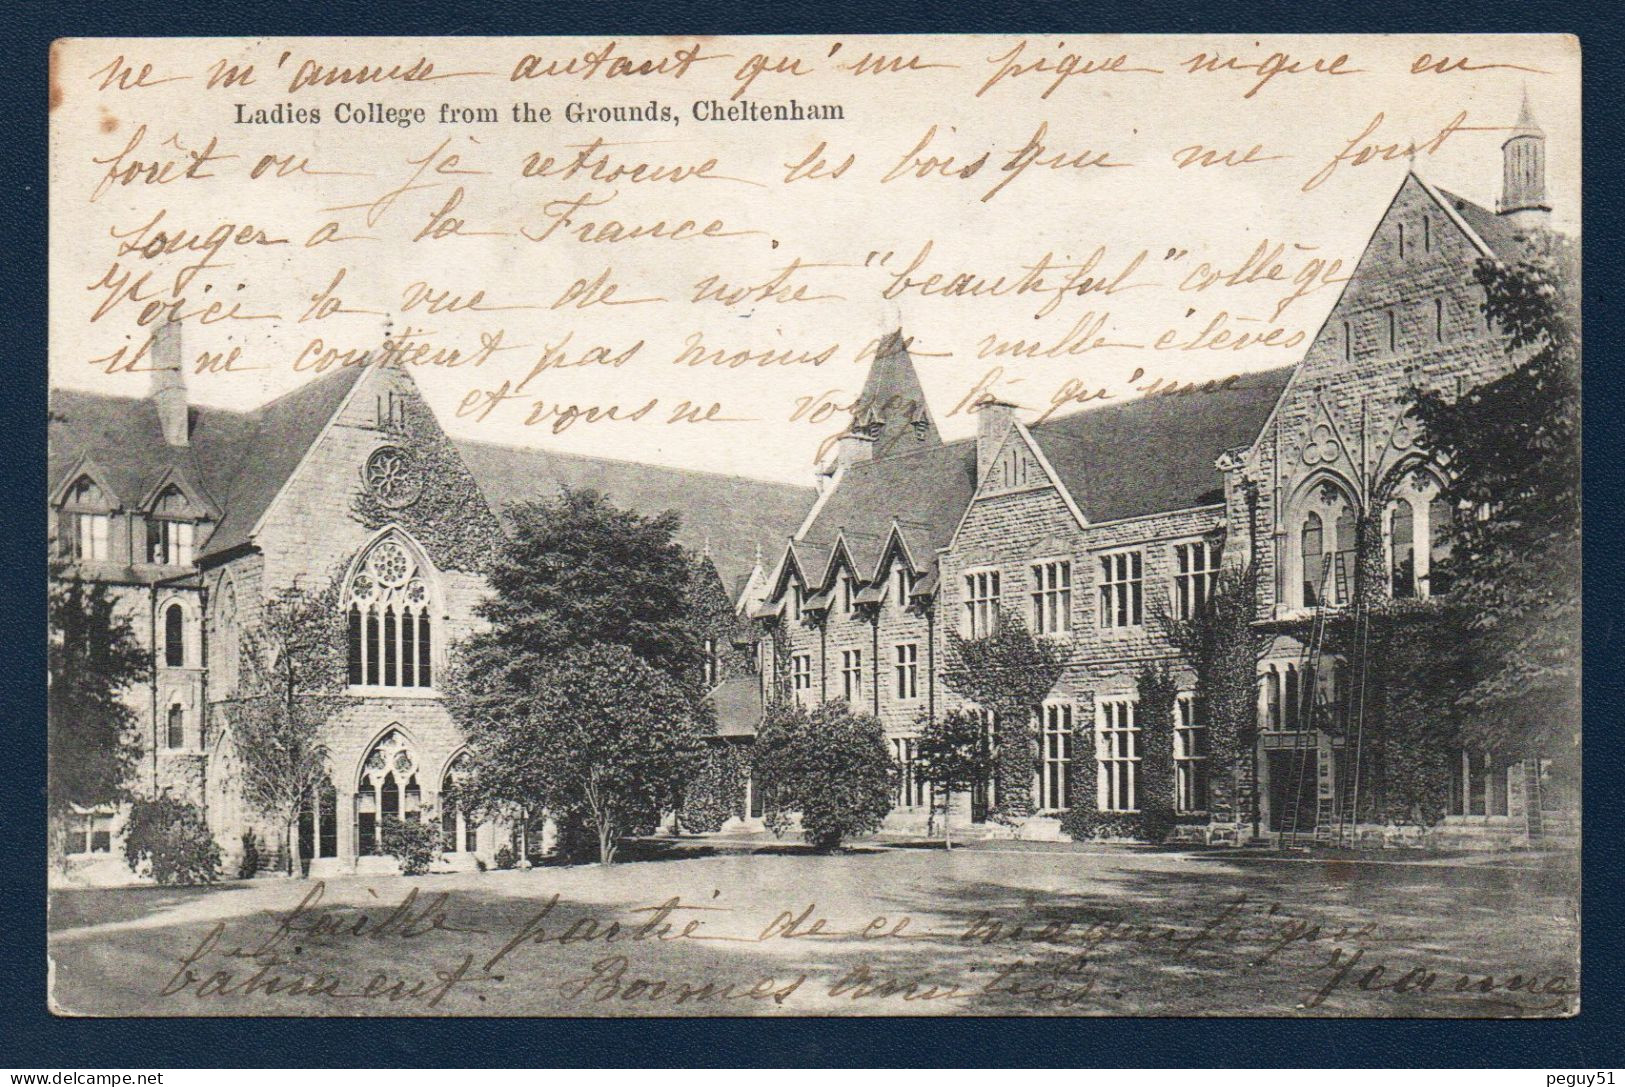 ne m'amuse autant qu'un pique nique en
Ladies College from the Grounds, Cheltenham
forêt ou je retrouve les bois qui me font
songer à la France.
Voici la vue de notre "beautiful" collège
il ne contient pas moins de mille élèves
et vous ne voyez là qu'une
faible partie de ce magnifique
bâtiment. Bonnes Amitiés. Jeanne
peguy51